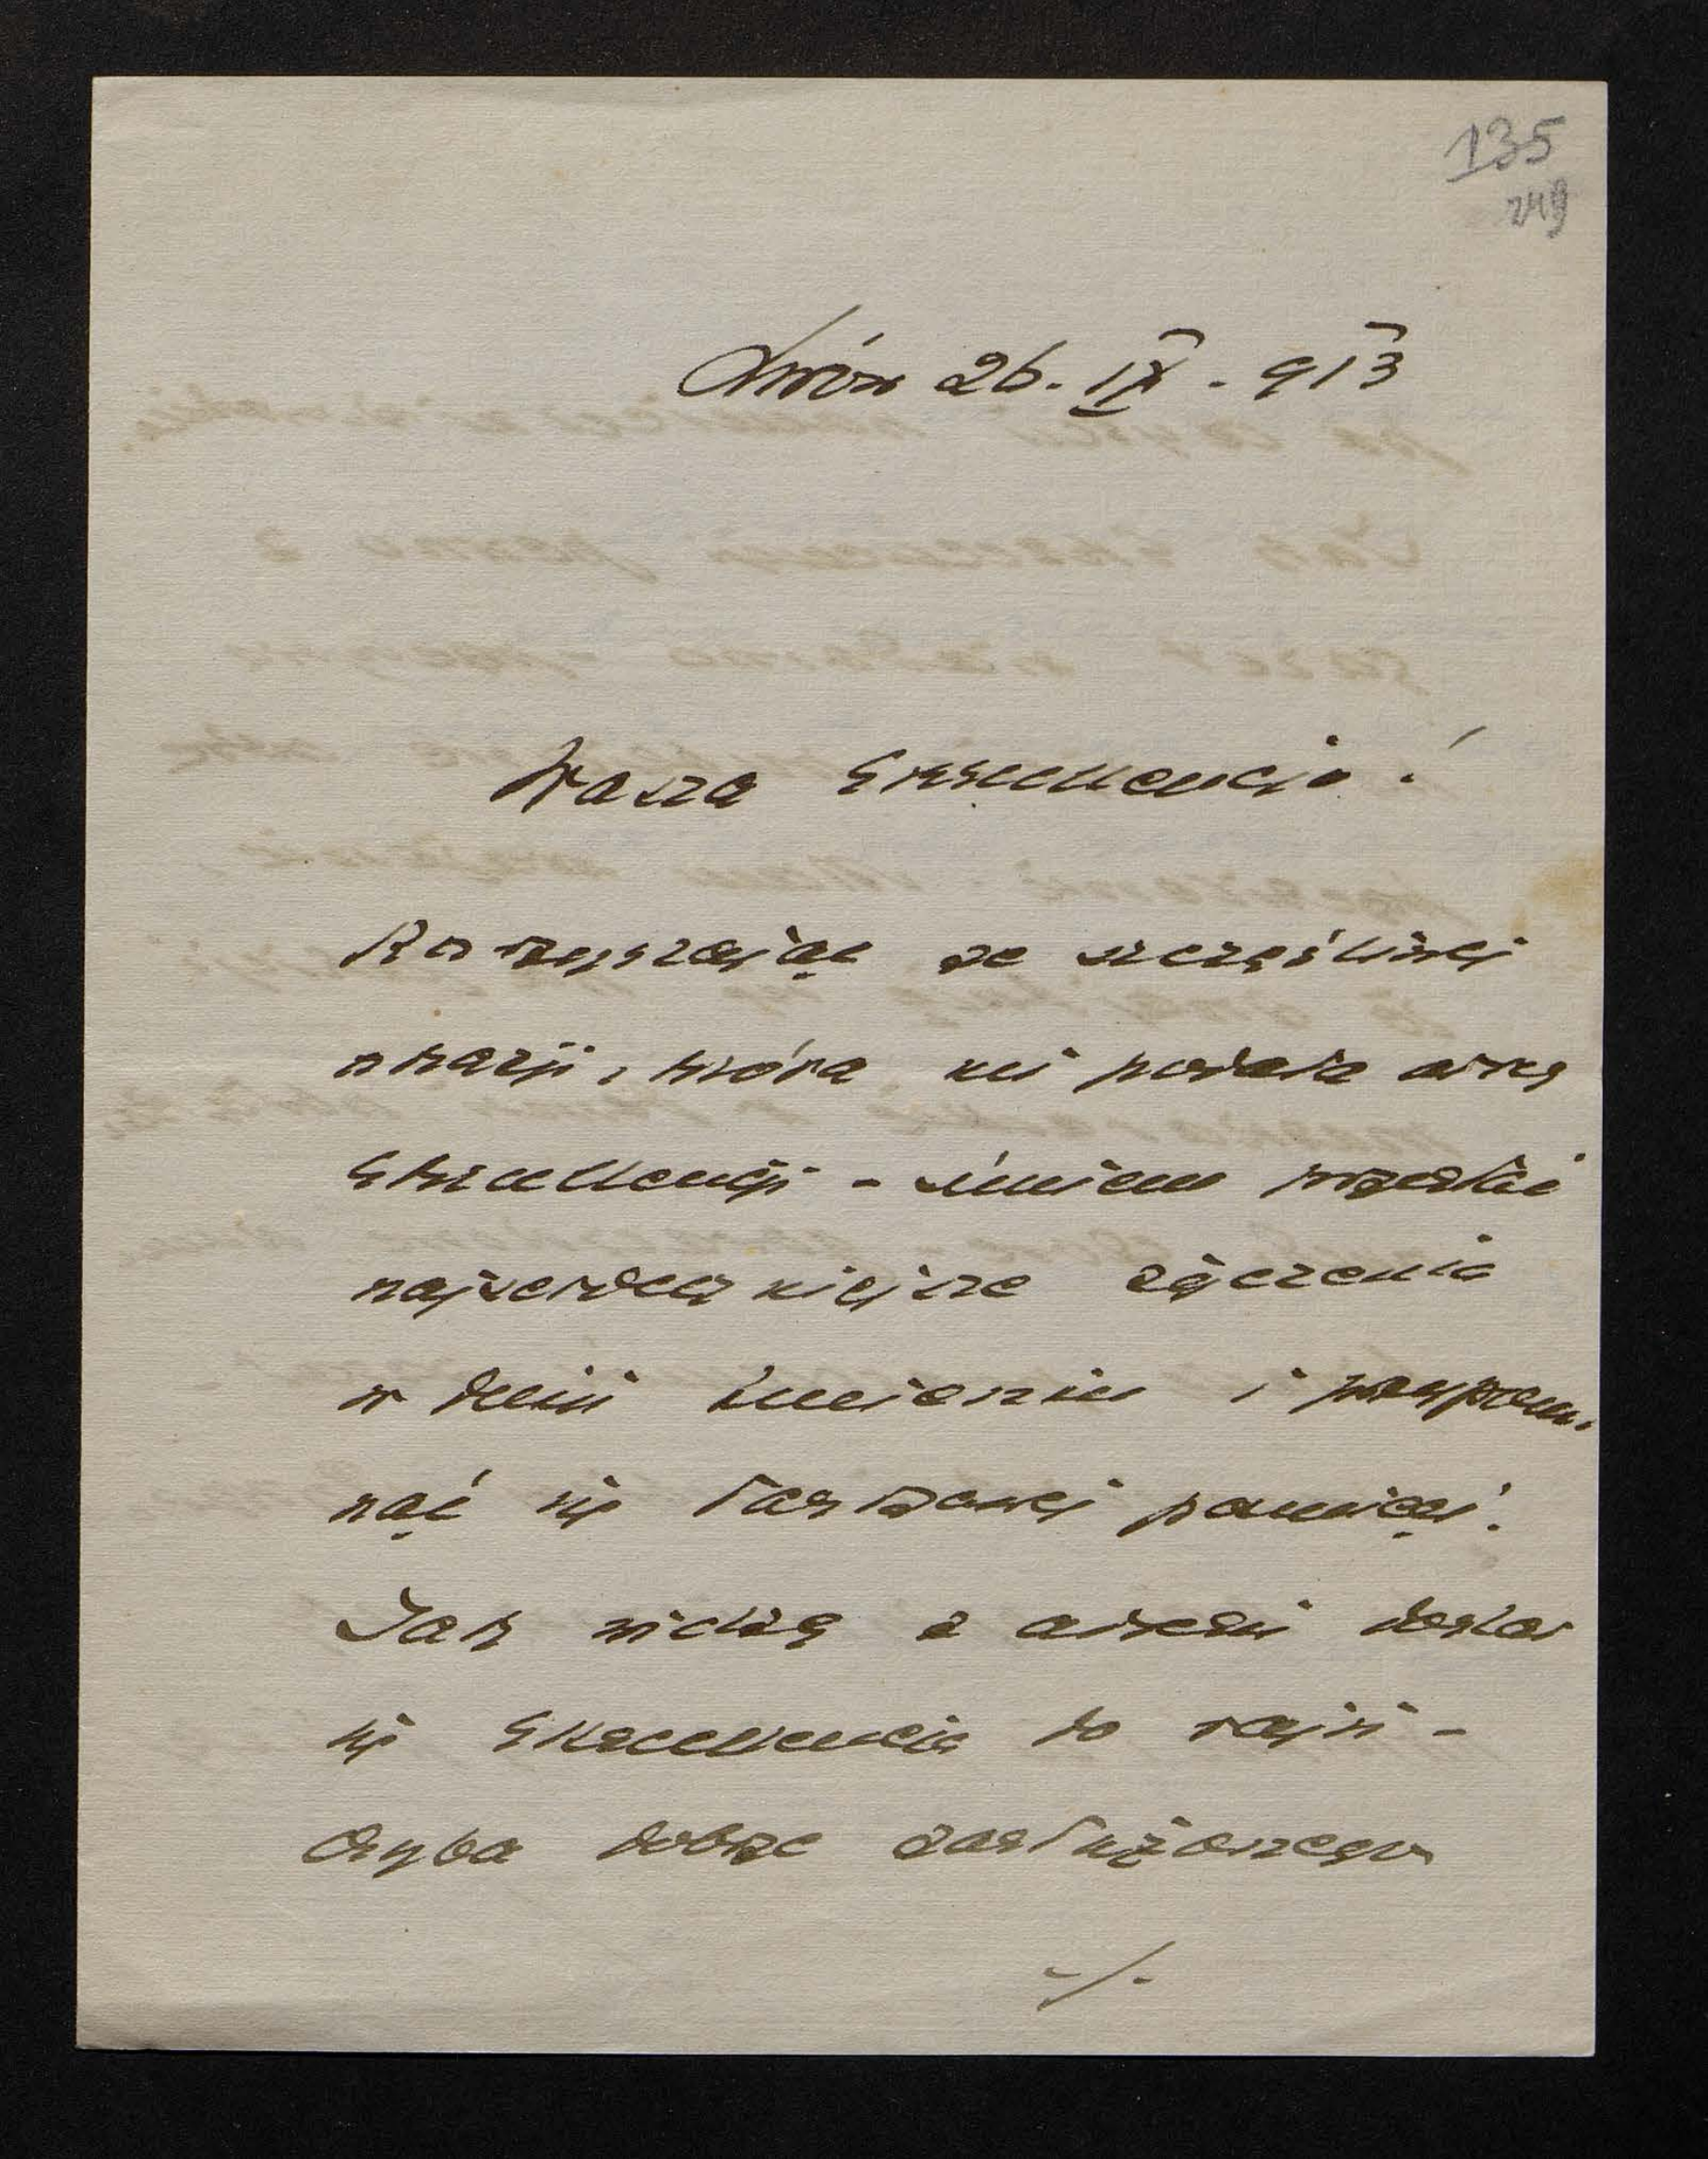 135
249
Lwów 26. IX. 913
Wasza Ekscellencjo!
Korzystając ze szczęśliwej
okazji, która mi podała adres
Ekscellencji - śmiem przesłać
najserdeczniejsze życzenia
w dniu Imienin i przypom-
nąć się łaskawej pamięci.
Jak widzę z adresu dostał
się Ekscellencja do raju -
chyba dobrze zasłużonego
-/-